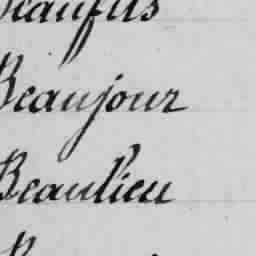 Beaufils
Beaujour
Beaulieu